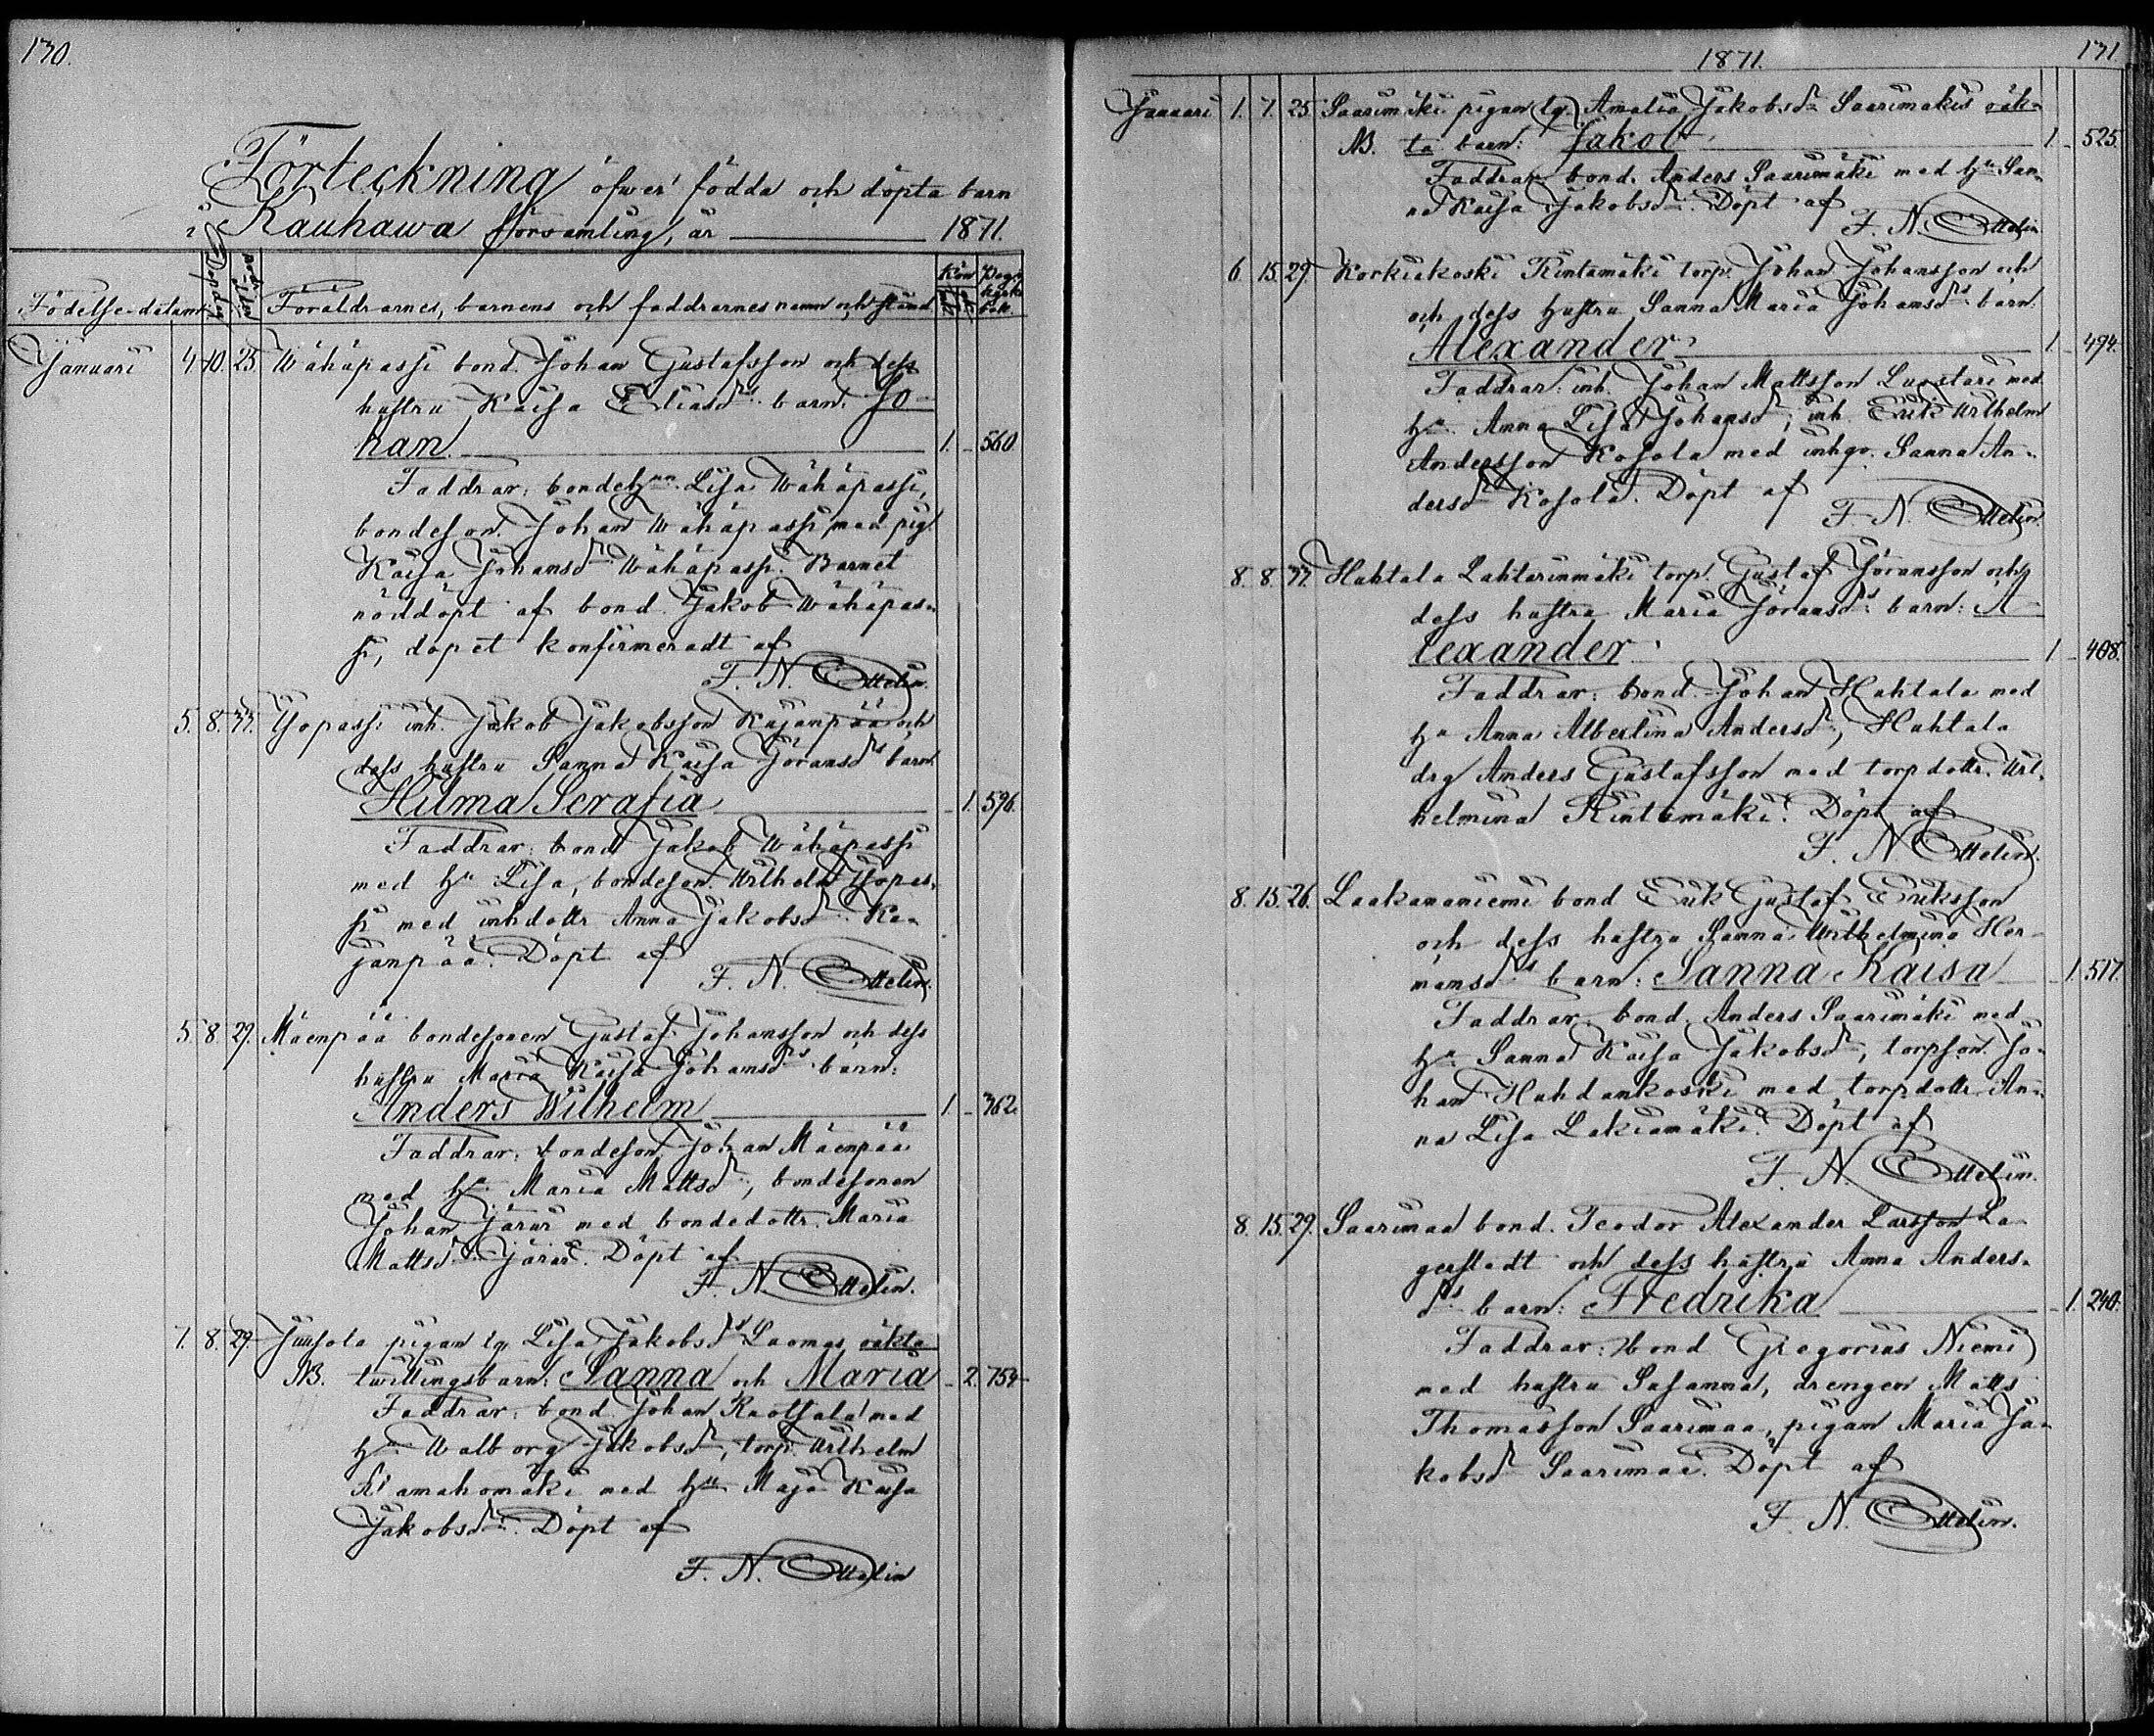 130.
Förteckning öfwer födda och döpta barn
i Kauhawa församling, år 1871.
Födelse-datum Dopdag Föräldrarnes, barnens och faddrarnes namn och stånd. Kön
Januari 4. 10. 25. Wähäpassi bond. Johan Gustafsson och dess
hustru Kaisa Eliasdrs barn: Jo-
han. 1. - 560.
Faddrar: bondehun Lisa Wähäpassi,
bondeson. Johan Wähäpassi med pig.
Kaisa Johansdr Wähäpassi. Barnet
nöddöpt af bond. Jakob Wähäpas-
si, dopet konfirmeradt af
F. N. Ottelin.
5. 8. 33. Yöpassi inh. Jakob Jakobsson Kajanpää och
dess hustru Sanna Kaisa Göransdrs barn:
Hilma Serafia - 1. 596.
Faddrar: bond Jakob Wähäpassi
med hu Lisa, bondeson. Wilhelm Yöpas-
si med inhdottr Anna Jakobsdr Ka-
janpää. Döpt af
F. N. Ottelin.
5. 8. 29. Mäenpää bondesonen Gustaf Johansson och dess
hustru Maria Kaisa Johansdrs barn:
Anders Wilhelm 1. - 362.
Faddrar: bondeson. Johan Mäenpää
med hu Maria Mattsdr, bondesonen
Johan Järäi med bondedottr. Maria
Mattsdr Järäi. Döpt af
F. N. Ottelin.
7. 8. 29. pigan lg. Lisa Jakobsdrs Luomas oäkta
NB. twillingsbarn: Sanna och Maria - 2. 754
Faddrar: bond Johan Raotsala med
hu Walborg Jakobsdr, torp. Wilhelm
med hu Maja Kaisa
Jakobsdr. Döpt af
F. N. Ottelin
1871. 131
Januari 1. 7. 25. Saarimäki pigan lg. Amalia Jakobsdr Saarimäkis oäk-
NB. ta barn: Jakob 1 - 525.
Faddrar bond. Anders Saarimäki med hu San-
na Kaisa Jakobsdr. Döpt af
F. N. Ottelin
6. 15. 29. Korkiakoski Rintamäki torp. Johan Johansson och
och dess hustru Sanna Maria Johansdrs barn
Alexander 1 - 494.
Faddrar: inh. Johan Mattsson Luostari med
hu Anna Lisa Johansdr, inh. Erik Wilhelm
Andersson Kosola med inhqv. Sanna An-
dersdr Kosola. Döpt af
F. N. Ottelin.
8. 8. 33. Huhtala Lahterinmäki torp. Gustaf Göransson och
dess hustru Maria Göransdrs barn: A-
lexander 1 - 408.
Faddrar: bond. Johan Huhtala med
hu Anna Albertina Andersdr, Huhtala
drg Anders Gustafsson med torpdottr. Wil-
helmina Rintamäki. Döpt af
F. N. Ottelin.
8. 15. 26. Laakananiemi bond Erik Gustaf Eriksson
och dess hustru Sanna Wilhelmina Her-
mansdrs barn: Sanna Kaisa - 1. 517.
Faddrar bond. Anders Saarimäki med
hu Sanna Kaisa Jakobsdr, torpson. Jo-
han Huhdankoski med torpdottr An-
na Lisa Lakiamäki. Döpt af
F. N. Ottelin.
8. 15. 29. Saarimaa bond. Teodor Alexander Larsson La-
gerstedt och dess hustru Anna Anders-
drs barn: Fredrika - 1. 240.
Faddrar: bond Gregorius Niemi
med hustru Susanna, drengen Matts
Thomasson Saarimaa, pigan Maria Ja-
kobsdr Saarimaa. Döpt af
F. N. Ottelin.